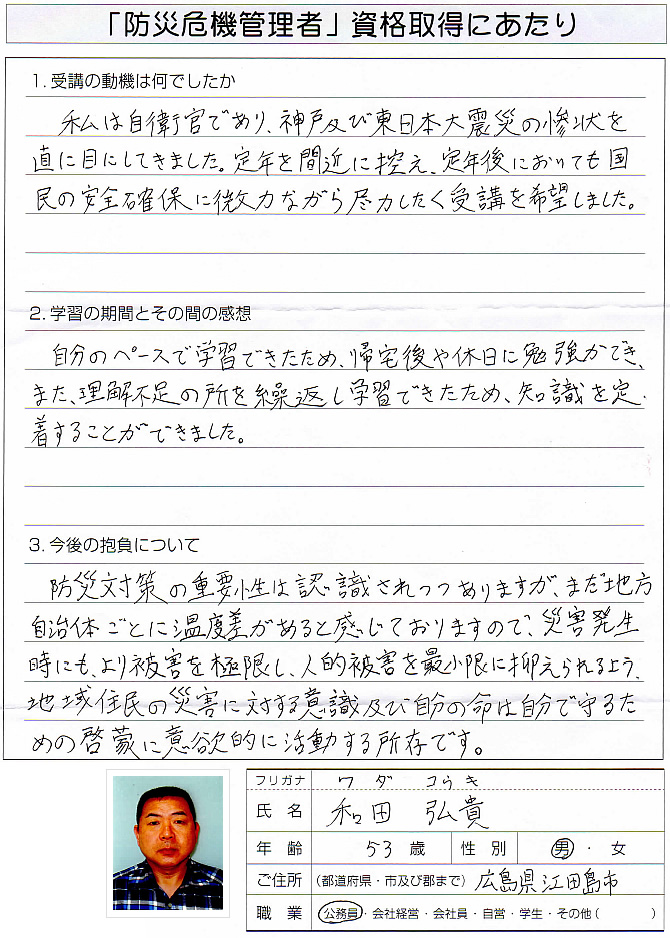 「防災危機管理者」資格取得にあたり
1. 受講の動機は何でしたか
私は自衛官であり、神戸及び東日本大震災の惨状を
直に目にしてきました。定年を間近に控え、定年後においても国
民の安全確保に微力ながら尽力したく受講を希望しました。
2. 学習の期間とその間の感想
自分のペースで学習できたため、帰宅後や休日に勉強ができ、
また、理解不足の所を繰返し学習できたため、知識を定
着することができました。
3. 今後の抱負について
防災対策の重要性は認識されつつありますが、まだ地方
自治体ごとに温度差があると感じておりますので、災害発生
時にも、より被害を極限し、人的被害を最小限に抑えられるよう、
地域住民の災害に対する意識及び自分の命は自分で守るた
めの啓蒙に意欲的に活動する所存です。
フリガナ ワダ コウキ
氏名 和田 弘貴
年齢 53歳 性別 男・女
ご住所 (都道府県・市及び郡まで) 広島県江田島市
職業 公務員・会社経営・会社員・自営・学生・その他( )